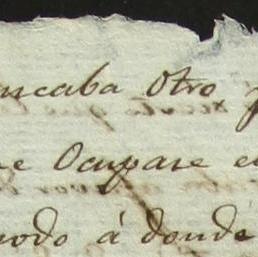 ncaba Otro
e Ocupase e
nodo á donde